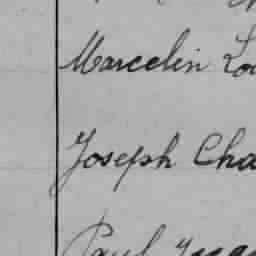 Marcelin Lou
Joseph Cha
Paul